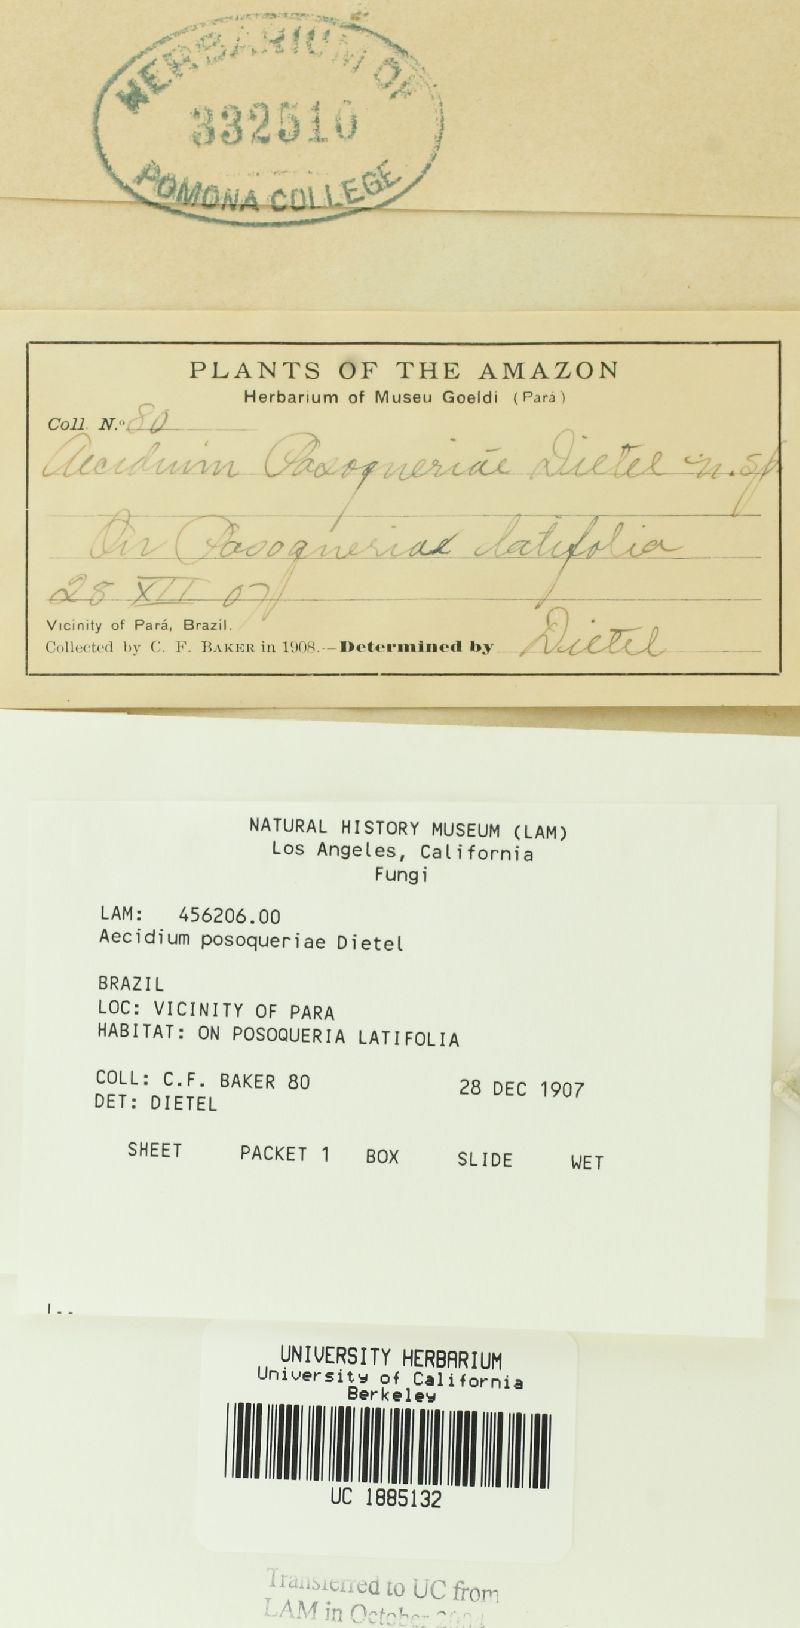 HERBARIUM OF
332510
POMONA COLLEGE
PLANTS OF THE AMAZON
Herbarium of Museu Goeldi (Pará)
Coll. N.º 80
Aecidium Posoqueriae Dietel n. sp
On Posoqueriae latifolia
28 XII 07
Vicinity of Pará, Brazil.
Collected by C. F. BAKER in 1908.—Determined by Dietel
NATURAL HISTORY MUSEUM (LAM)
Los Angeles, California
Fungi
LAM: 456206.00
Aecidium posoqueriae Dietel
BRAZIL
LOC: VICINITY OF PARA
HABITAT: ON POSOQUERIA LATIFOLIA
COLL: C.F. BAKER 80 28 DEC 1907
DET: DIETEL
SHEET PACKET 1 BOX SLIDE WET
UNIVERSITY HERBARIUM
University of California
Berkeley
UC 1885132
Transferred to UC from
LAM in October